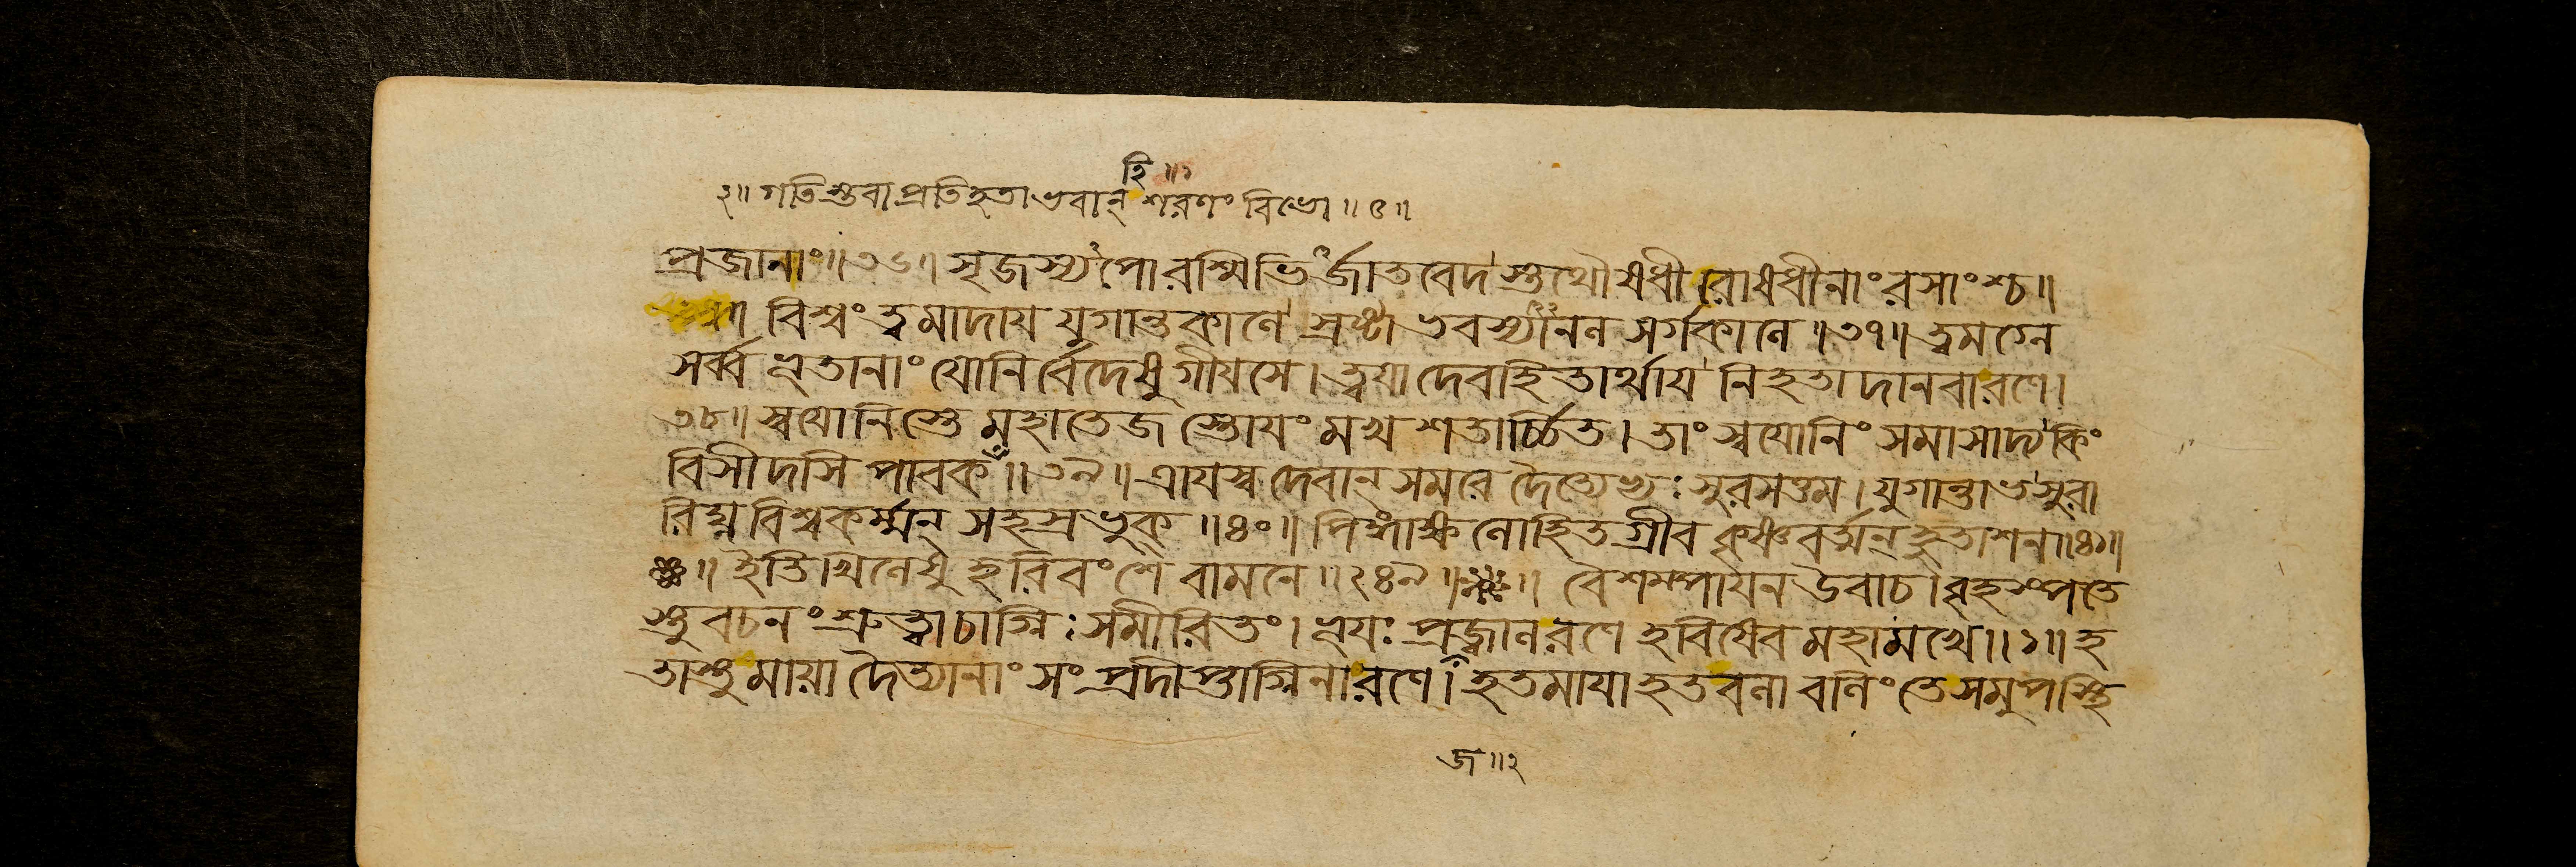 হি॥১
২॥ গতিস্তবাপ্রতিহতাভবান্ শরণং বিভো॥৫॥
প্রজানাং॥৩৬॥ সৃজস্যপোরশ্মিভির্জাতবেদস্তথৌষধীরোষধীনাং রসাংশ্চ॥
বিশ্বং ত্বমাদায যুগান্তকালে স্রষ্টা ভবস্যানল সর্গকালে॥৩৭॥ ত্বমগ্নে
সর্ব্বভূতানাং যোনির্বেদেষুগীযসে। ত্বযাদেবাহিতার্থায নিহতা দানবারণে।
৩৮॥ স্বযোনিস্তে মহাতেজস্তোযং মখশতার্চ্চিত। তাং স্বযোনিং সমাসাদ্য কিং
বিসীদসি পাবক॥৩৯॥ ত্রাযস্ব দেবান্ সমরে দৈত্যেভ্যঃ সুরসত্তম। যুগান্তাভ সুরা
রিঘ্ন বিশ্বকর্ম্মন্ সহস্রভুক্॥৪০॥ পিঙ্গাক্ষ লোহিতগ্রীব কৃষ্ণবর্ত্মন্ হুতাশন॥৪১॥
॥ ইতি খিলেষু হরিবংশে বামনে॥২৪৯॥ ॥ বৈশম্পাযন উবাচ। বৃহস্পতে
স্তু বচনং শ্রুত্বাচাগ্নিঃ সমীরিতং। ভূযঃ প্রজ্বালরণে হবিষেব মহামখে॥১॥ হ
তাস্তু মাযা দৈত্যানাং সংপ্রদীপ্তাগ্নিনারণে। হতমাযা হতবলা বলিং তেসমুপস্থি
জ॥২